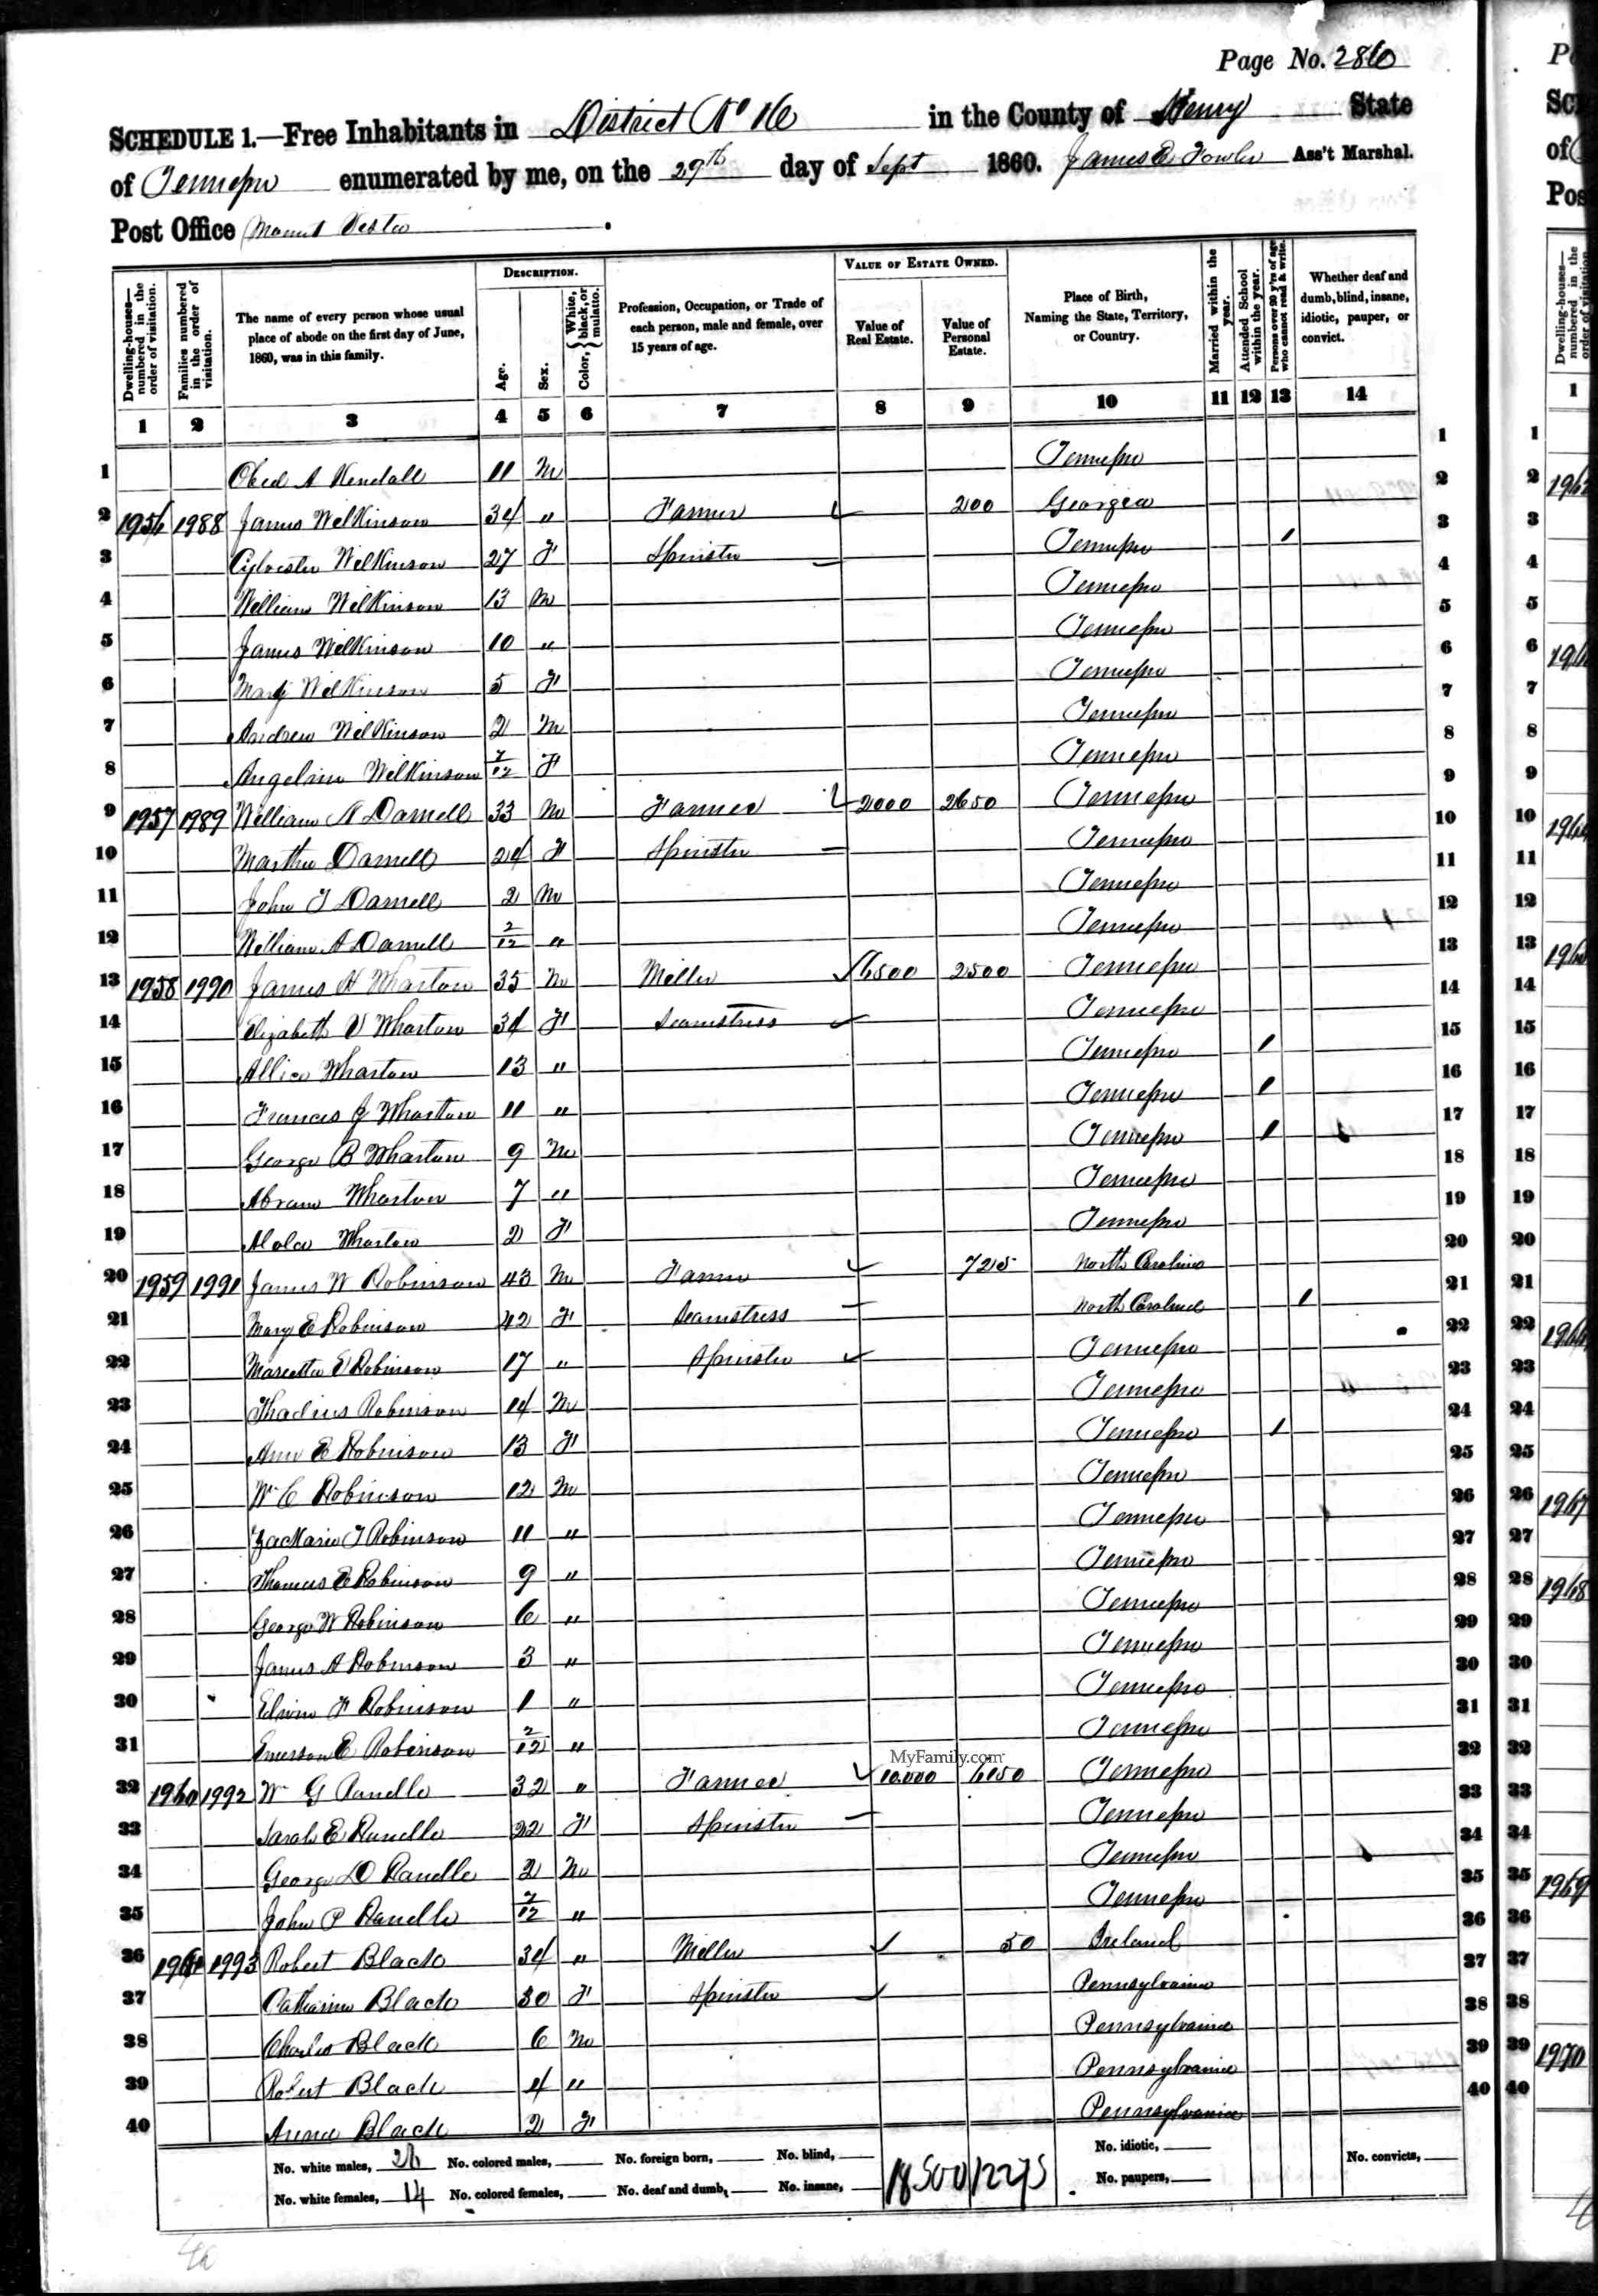 Page No. 286
SCHEDULE 1.—Free Inhabitants in District No 16 in the County of Henry State
of Tennessee enumerated by me, on the 29th day of Sept 1860. James E Fowler Ass't Marshal.
Post Office Mount Vesta
Dwelling-houses—numbered in the order of visitation. Families numbered in the order of visitation. The name of every person whose usual place of abode on the first day of June, 1860, was in this family. DESCRIPTION. Age. Sex. Color, {White, black, or mulatto. Profession, Occupation, or Trade of each person, male and female, over 15 years of age. VALUE OF ESTATE OWNED. Value of Real Estate. Value of Personal Estate. Place of Birth, Naming the State, Territory, or Country. Married within the year. Attended School within the year. Persons over 20 y'rs of age who cannot read & write. Whether deaf and dumb, blind, insane, idiotic, pauper, or convict.
1 2 3 4 5 6 7 8 9 10 11 12 13 14
1 Obed A Kendall 11 M Tennessee 1
2 1956 1988 James Wilkinson 34 " Farmer 200 Georgia 2
3 Cylvester Wilkinson 27 F Spinster Tennessee / 3
4 William Wilkinson 13 M Tennessee 4
5 James Wilkinson 10 " Tennessee 5
6 Mary Wilkinson 5 F Tennessee 6
7 Andrew Wilkinson 2 M Tennessee 7
8 Angeline Wilkinson 7/12 F Tennessee 8
9 1957 1989 William A Darnell 33 M Farmer 2000 2650 Tennessee 9
10 Martha Darnell 24 F Spinster Tennessee 10
11 John T Darnell 2 M Tennessee 11
12 William A Darnell 2/12 " Tennessee 12
13 1958 1990 James H Wharton 35 M Miller 6500 2500 Tennessee 13
14 Elizabeth V Wharton 34 F Seamstress Tennessee 14
15 Allice Wharton 13 " Tennessee / 15
16 Frances J Wharton 11 " Tennessee / 16
17 George B Wharton 9 M Tennessee / 17
18 Abram Wharton 7 " Tennessee 18
19 Alola Wharton 2 F Tennessee 19
20 1959 1991 James W Robinson 43 M Farmer 725 North Carolina 20
21 Mary E Robinson 42 F Seamstress North Carolina / 21
22 E Robinson 17 " Spinster Tennessee 22
23 Thadius Robinson 14 M Tennessee 23
24 Ann E Robinson 13 F Tennessee / 24
25 Wm C Robinson 12 M Tennessee 25
26 Zackarie T Robinson 11 " Tennessee 26
27 Thomas E Robinson 9 " Tennessee 27
28 George W Robinson 6 " Tennessee 28
29 James A Robinson 3 " Tennessee 29
30 Edwin F Robinson 1 " Tennessee 30
31 Emerson E Robinson 2/12 " Tennessee 31
MyFamily.com
32 1960 1992 Wm G Randle 32 " Farmer 10.000 6150 Tennessee 32
33 Sarah E Randle 22 F Spinster Tennessee 33
34 George D Randle 2 M Tennessee 34
35 John P Randle 7/12 " Tennessee 35
36 1961 1993 Robert Black 34 " Miller 50 Ireland 36
37 Catharine Black 30 F Spinster Pennsylvania 37
38 Charles Black 6 M Pennsylvania 38
39 Robert Black 4 " Pennsylvania 39
40 Anna Black 2 F Pennsylvania 40
No. white males, 26 No. colored males, No. foreign born, No. blind, No. idiotic, No. convicts,
No. white females, 14 No. colored females, No. deaf and dumb, No. insane, 18500 12275 No. paupers,